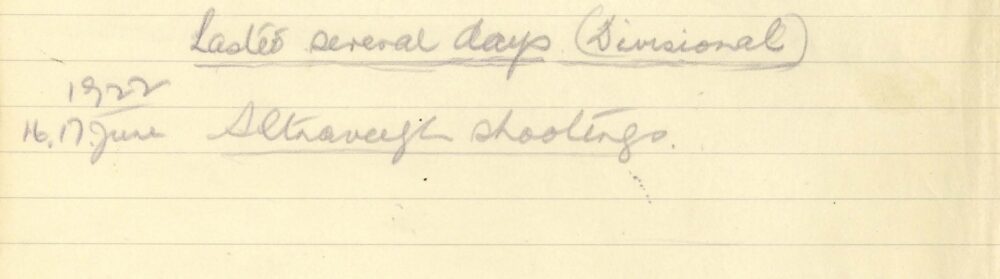 Lasted several days (Divisional)
1922
16, 17. June Altnaveigh shootings.